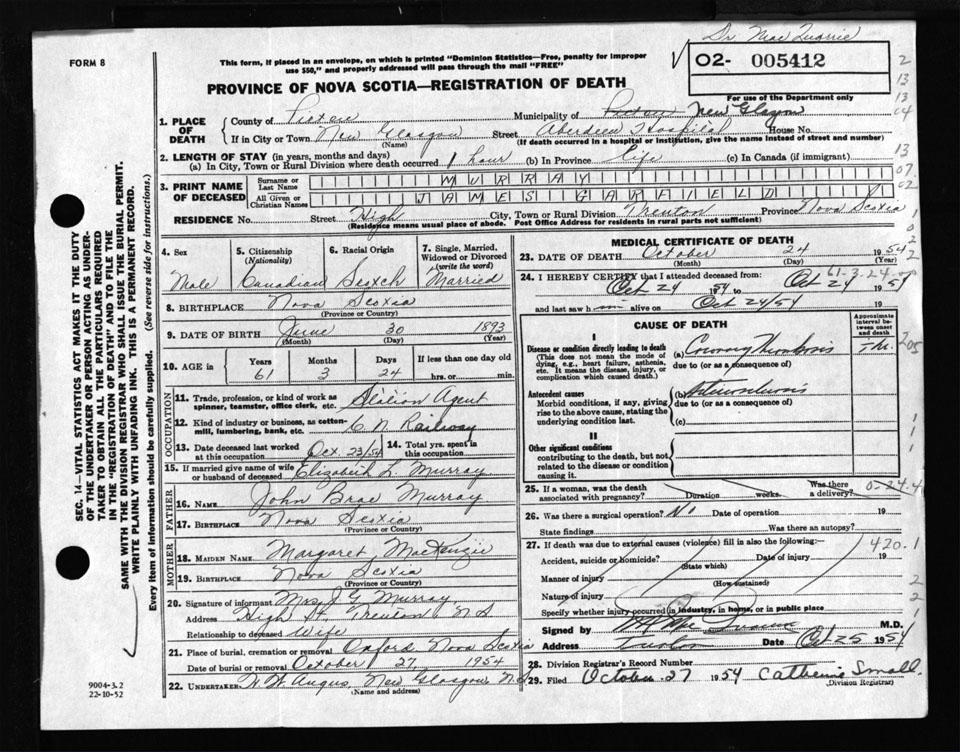 Dr Mac Quarrie
FORM 8
This form, if placed in an envelope, on which is printed "Dominion Statistics—Free, penalty for improper
use $50," and properly addressed will pass through the mail "FREE"
02- 005412
PROVINCE OF NOVA SCOTIA—REGISTRATION OF DEATH
For use of the Department only
1. PLACE OF DEATH
County of Pictou Municipality of Pictou New Glasgow
If in City or Town New Glasgow Street Aberdeen Hospital House No.
(Name) (If death occurred in a hospital or institution, give the name instead of street and number)
2. LENGTH OF STAY (in years, months and days)
(a) In City, Town or Rural Division where death occurred 1 hour (b) In Province life (c) In Canada (if immigrant)
3. PRINT NAME OF DECEASED
Surname or Last Name MURRAY
All Given or Christian Names JAMES GARFIELD
RESIDENCE No. Street High City, Town or Rural Division Trenton Province Nova Scotia
(Residence means usual place of abode. Post Office Address for residents in rural parts not sufficient)
4. Sex Male
5. Citizenship (Nationality) Canadian
6. Racial Origin Scotch
7. Single, Married, Widowed or Divorced (write the word) Married
8. BIRTHPLACE Nova Scotia
(Province or Country)
9. DATE OF BIRTH June 30 1893
(Month) (Day)
10. AGE in Years 61 Months 3 Days 24 If less than one day
hrs. or min.
OCCUPATION
11. Trade, profession, or kind of work as
spinner, teamster, office clerk, etc. Station Agent
12. Kind of industry or business, as cotton-
mill, lumbering, bank, etc. C. N. Railway
13. Date deceased last worked
at this occupation Oct. 23/54
14. Total yrs. spent in
this occupation
15. If married give name of wife
or husband of deceased Elizabeth L. Murray
FATHER
16. NAME John Brae Murray
17. BIRTHPLACE Nova Scotia
(Province or Country)
MOTHER
18. MAIDEN NAME Margaret MacKenzie
19. BIRTHPLACE Nova Scotia
(Province or Country)
20. Signature of informant Mrs J. G. Murray
Address High St. Trenton N S
Relationship to deceased Wife
21. Place of burial, cremation or removal Oxford Nova Scotia
Date of burial or removal October 27 1954
22. UNDERTAKER H. W. Angus, New Glasgow, N.S.
(Name and address)
MEDICAL CERTIFICATE OF DEATH
23. DATE OF DEATH October 24 1954
(Month) (Day)
61-3-24
24. I HEREBY CERTIFY that I attended deceased from
Oct 24 1954 to Oct 24 1954
and last saw him alive on Oct 24/54 19
CAUSE OF DEATH
Approximate interval between onset and death
I
Disease or condition directly leading to death
(This does not mean the mode of dying, e.g., heart failure, asthenia, etc. It means the disease, injury, or complication which caused death.)
(a) Coronary thrombosis
due to (or as a consequence of)
Antecedent causes
Morbid conditions, if any, giving rise to the above cause, stating the underlying condition last.
(b) Arteriosclerosis
due to (or as a consequence of)
(c)
II
Other significant conditions
contributing to the death, but not related to the disease or condition causing it.
25. If a woman, was the death
associated with pregnancy? Duration weeks. Was there a delivery?
0-24.4
26. Was there a surgical operation? No Date of operation 19
State findings Was there an autopsy?
27. If death was due to external causes (violence) fill in also the following:—
420.1
Accident, suicide or homicide? Date of injury 19
(State which)
Manner of injury
(How sustained)
Nature of injury
Specify whether injury occurred in industry, in home, or in public place
Signed by M.D.
Address Date Oct 25 1954
28. Division Registrar's Record Number
29. Filed October 27 1954 Catherine Small
(Division Registrar)
SEC. 14—VITAL STATISTICS ACT MAKES IT THE DUTY
OF THE UNDERTAKER OR PERSON ACTING AS UNDER-
TAKER TO OBTAIN ALL THE PARTICULARS REQUIRED
IN THE "REGISTRATION OF DEATH" AND TO FILE THE
SAME WITH THE DIVISION REGISTRAR WHO SHALL ISSUE THE BURIAL PERMIT.
WRITE PLAINLY WITH UNFADING INK. THIS IS A PERMANENT RECORD.
Every item of information should be carefully supplied. (See reverse side for instructions.)
9004-3.2
22-10-52